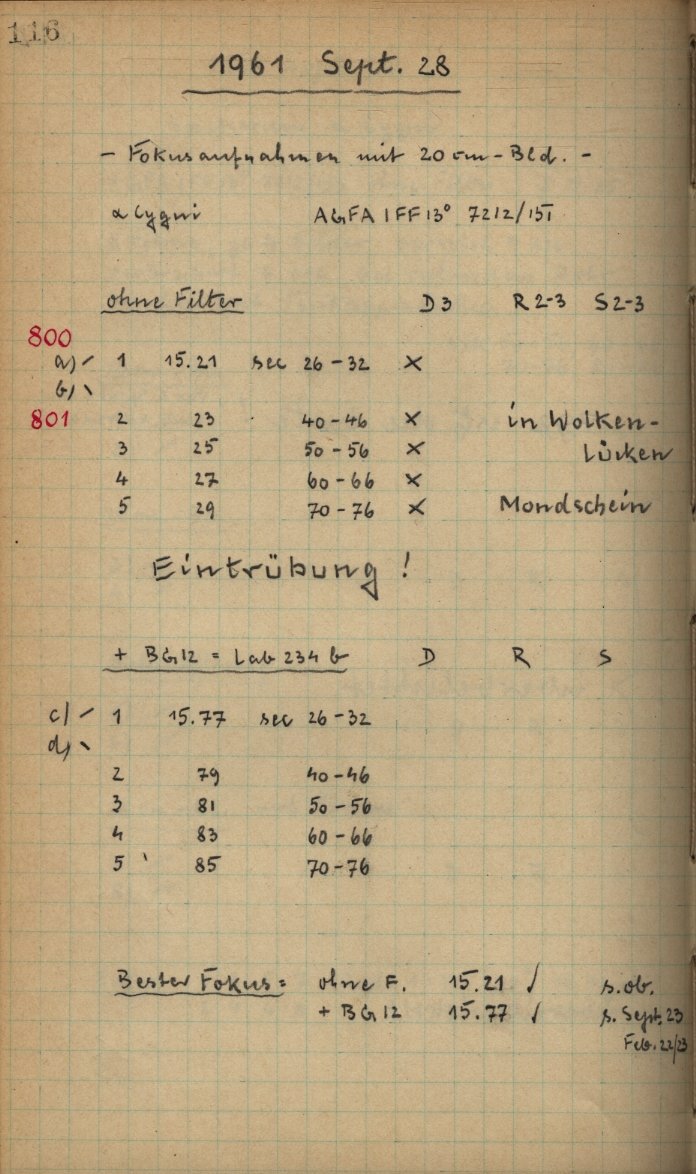 116
1961 Sept. 28
- Fokusaufnahmen mit 20 cm-Bld. -
α Cygni AGFA IFF 13° 7212/151
ohne Filter D3 R 2-3 S 2-3
800
a) / 1 15.21 sec 26-32 ×
b) \
801 2 23 40-46 × in Wolken-
3 25 50-56 × Lücken
4 27 60-66 ×
5 29 70-76 × Mondschein
Eintrübung!
+ BG12 = Lab 234 b D R S
c) / 1 15.77 sec 26-32
d) \
2 79 40-46
3 81 50-56
4 83 60-66
5 85 70-76
Bester Fokus: ohne F. 15.21 √ s. ob.
+ BG12 15.77 √ s. Sept. 23
Feb. 22/23